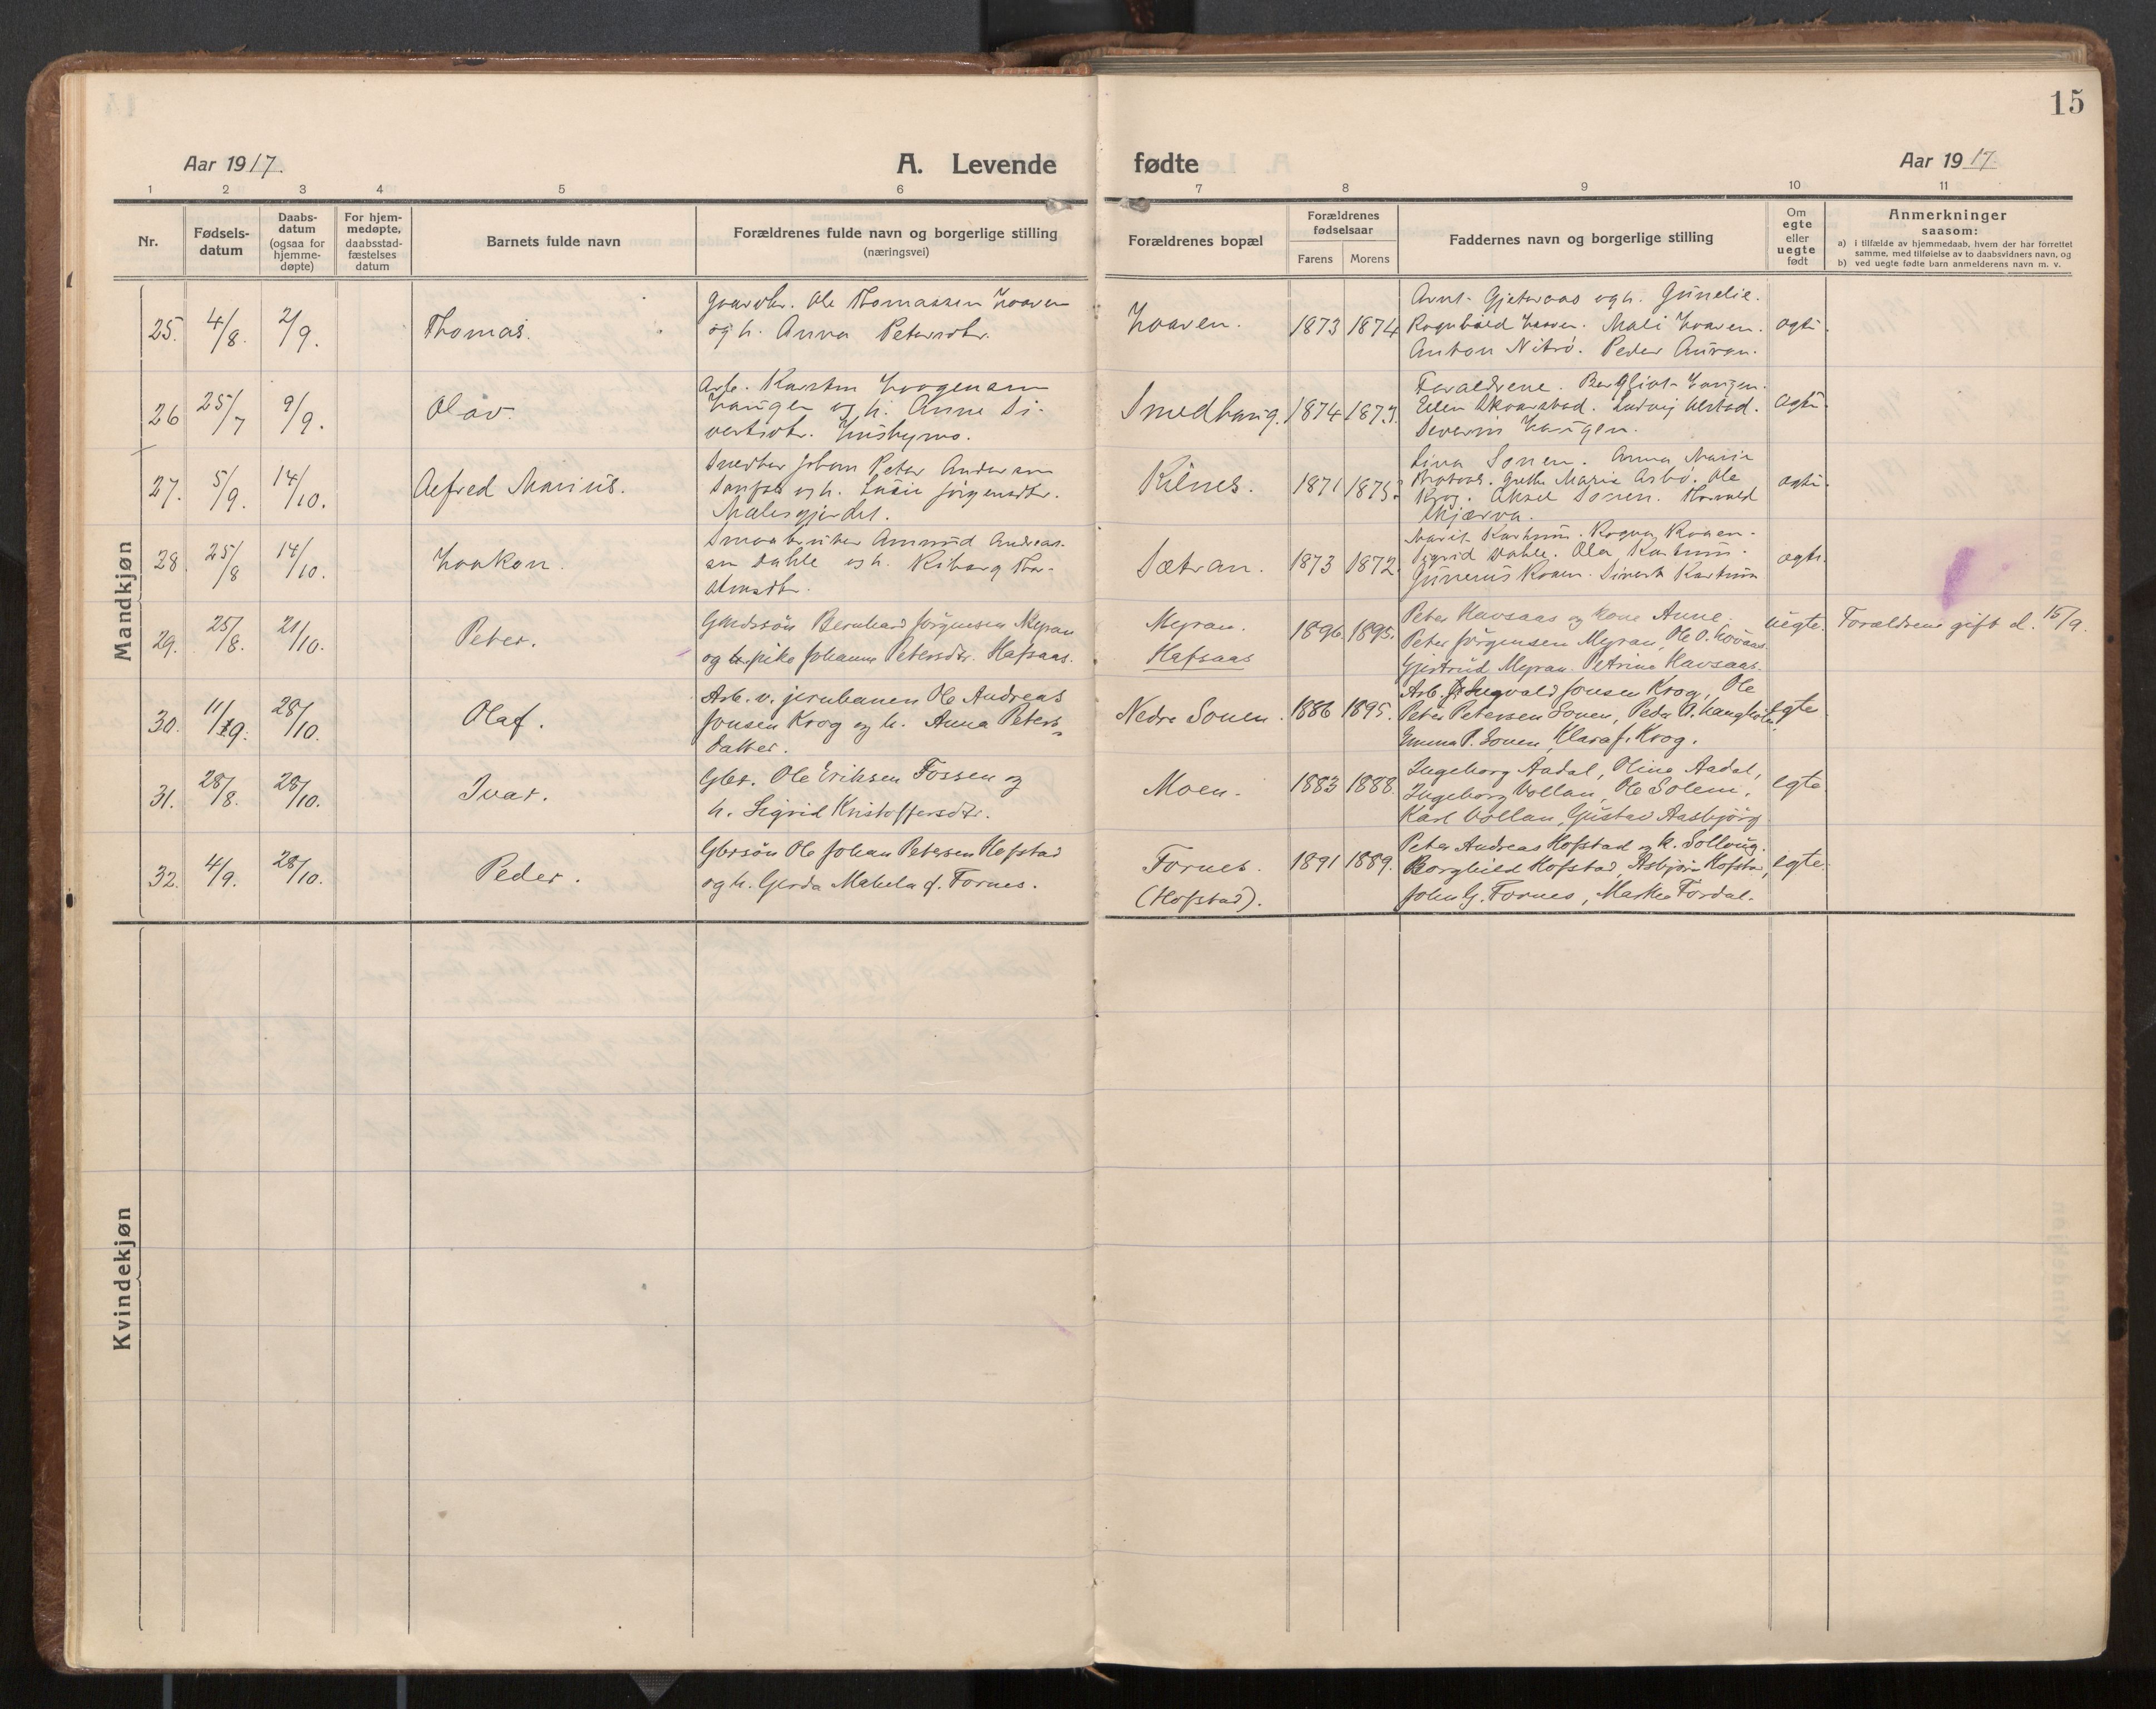 15
Aar 1917.
A. Levende
fødte
Aar 1917
1 2 3 4 5 6 7 8 9 10 11
Nr.
Fødsels-
datum
Daabs-
datum
(ogsaa for
hjemme-
døpte)
For hjem-
medøpte,
daabsstad-
fæstelses
datum
Barnets fulde navn
Forældrenes fulde navn og borgerlige stilling
(næringsvei)
Forældrenes bopæl
Forældrenes
fødselsaar
Farens
Morens
Faddernes navn og borgerlige stilling
Om
egte
eller
uegte
født
Anmerkninger
saasom:
a) i tilfælde av hjemmedaab, hvem der har forrettet
samme, med tilføielse av to daabsvidners navn, og
b) ved uegte fødte barn anmelderens navn m. v.
Mandkjøn
25. 4/8. 2/9. Thomas.
Gaardbr. Ole Thomassen Haaven
og h. Anna Petersdtr.
Haaven. 1873 1874
Arnt Gjeteraas og h. Gunelie.
Ragnhild Haaven. Mali Haaven.
Anton Nitrø. Peder Auran.
egte.
26 25/7 9/9. Olav.
Arb. Karsten Haagensen
Haugen og h. Anne Si-
vertsdtr. Husbymo.
Smedhaug. 1874 1873.
Forældrene. Bergliot Haugen.
Ellen Skaarstad. Ludvig
Severin Haugen.
egte.
27. 5/9. 14/10. Alfred Marius.
Snedker Johan Peter Andersen
og h. Lucie Jørgensdtr.
Malesgjerdet.
Kilnes. 1871 1875.
Lina Sonen. Anna Marie
Grethe Marie Arbø. Ole
Krog. Aksel Sonen. Harald
Skjærva.
egte.
28. 25/8 14/10. Haakon.
Smaabruker Amund Andreas-
sen Dahle og h.
Sætran. 1873 1872.
Marit Kartum. Ragna Roaen.
Sigrid Dahle. Ola Kartum.
Gunerius Roaen. Sivert Kartum
egte.
29. 25/8. 21/10. Peter.
Grdssøn Bernhard Jørgensen Myran
og pike Johanna Petersdtr. Hafsaas.
Myran.
Hafsaas
1896. 1895.
Peter Havsaas og kone Anne.
Peter Jørgensen Myran, Ole O.
Gjertrud Myran. Petrine Havsaas.
uegte. Forældrene gift d. 15/9.
30. 11/9. 28/10. Olaf.
Arb. v. jernbanen Ole Andreas
Jonsen Krog og h. Anna Peters-
datter.
Nedre Sonen. 1886 1895.
Arb. Ingvald Jonsen Krog, Ole
Peter Petersen Sonen, Peder
Emma P. Sonen, Klara J. Krog.
egte
31. 28/8. 28/10. Ivar.
Gbr. Ole Eriksen Fossen og
h. Sigrid Kristoffersdtr.
Moen. 1883 1888.
Ingeborg Aadal, Olina Aadal,
Ingeborg Vollan, Ole Solem,
Karl Vollan, Gustav Aasbjörg
egte
32. 4/9. 28/10. Peder.
Gbrsön Ole Johan Petersen Hofstad
og h. Gerda Mahela f. Fornes.
Fornes.
(Hofstad).
1891 1889.
Peter Andreas Hofstad og h. Solloug.
Borghild Hofstad, Asbjørn Hofstad,
John G. Fornes, Marthea Fordal.
egte.
Kvindekjøn